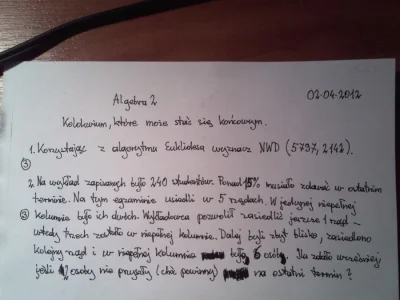 Algebra 2 02-04-2012
Kolokwium, które może stać się końcowym.
1. Korzystając z algorytmu Euklidesa wyznacz NWD (5797, 2142).
③
2. Na wykład zapisanych było 240 studentów. Ponad 15% musiało zdawać w ostatnim
terminie. Na tym egzaminie usiedli w 5 rzędach. W jedynej niepełnej
③ kolumnie było ich dwóch. Wykładowca pozwolił zasiedlić jeszcze 1 rząd -
wtedy trzech zostało w niepełnej kolumnie. Dalej byli zbyt blisko, zasiedlono
kolejny rząd i w niepełnej kolumnie było 6 osób. Ilu zdało wcześniej
jeśli 12 osoby nie przyszły (choć powinny) na ostatni termin?